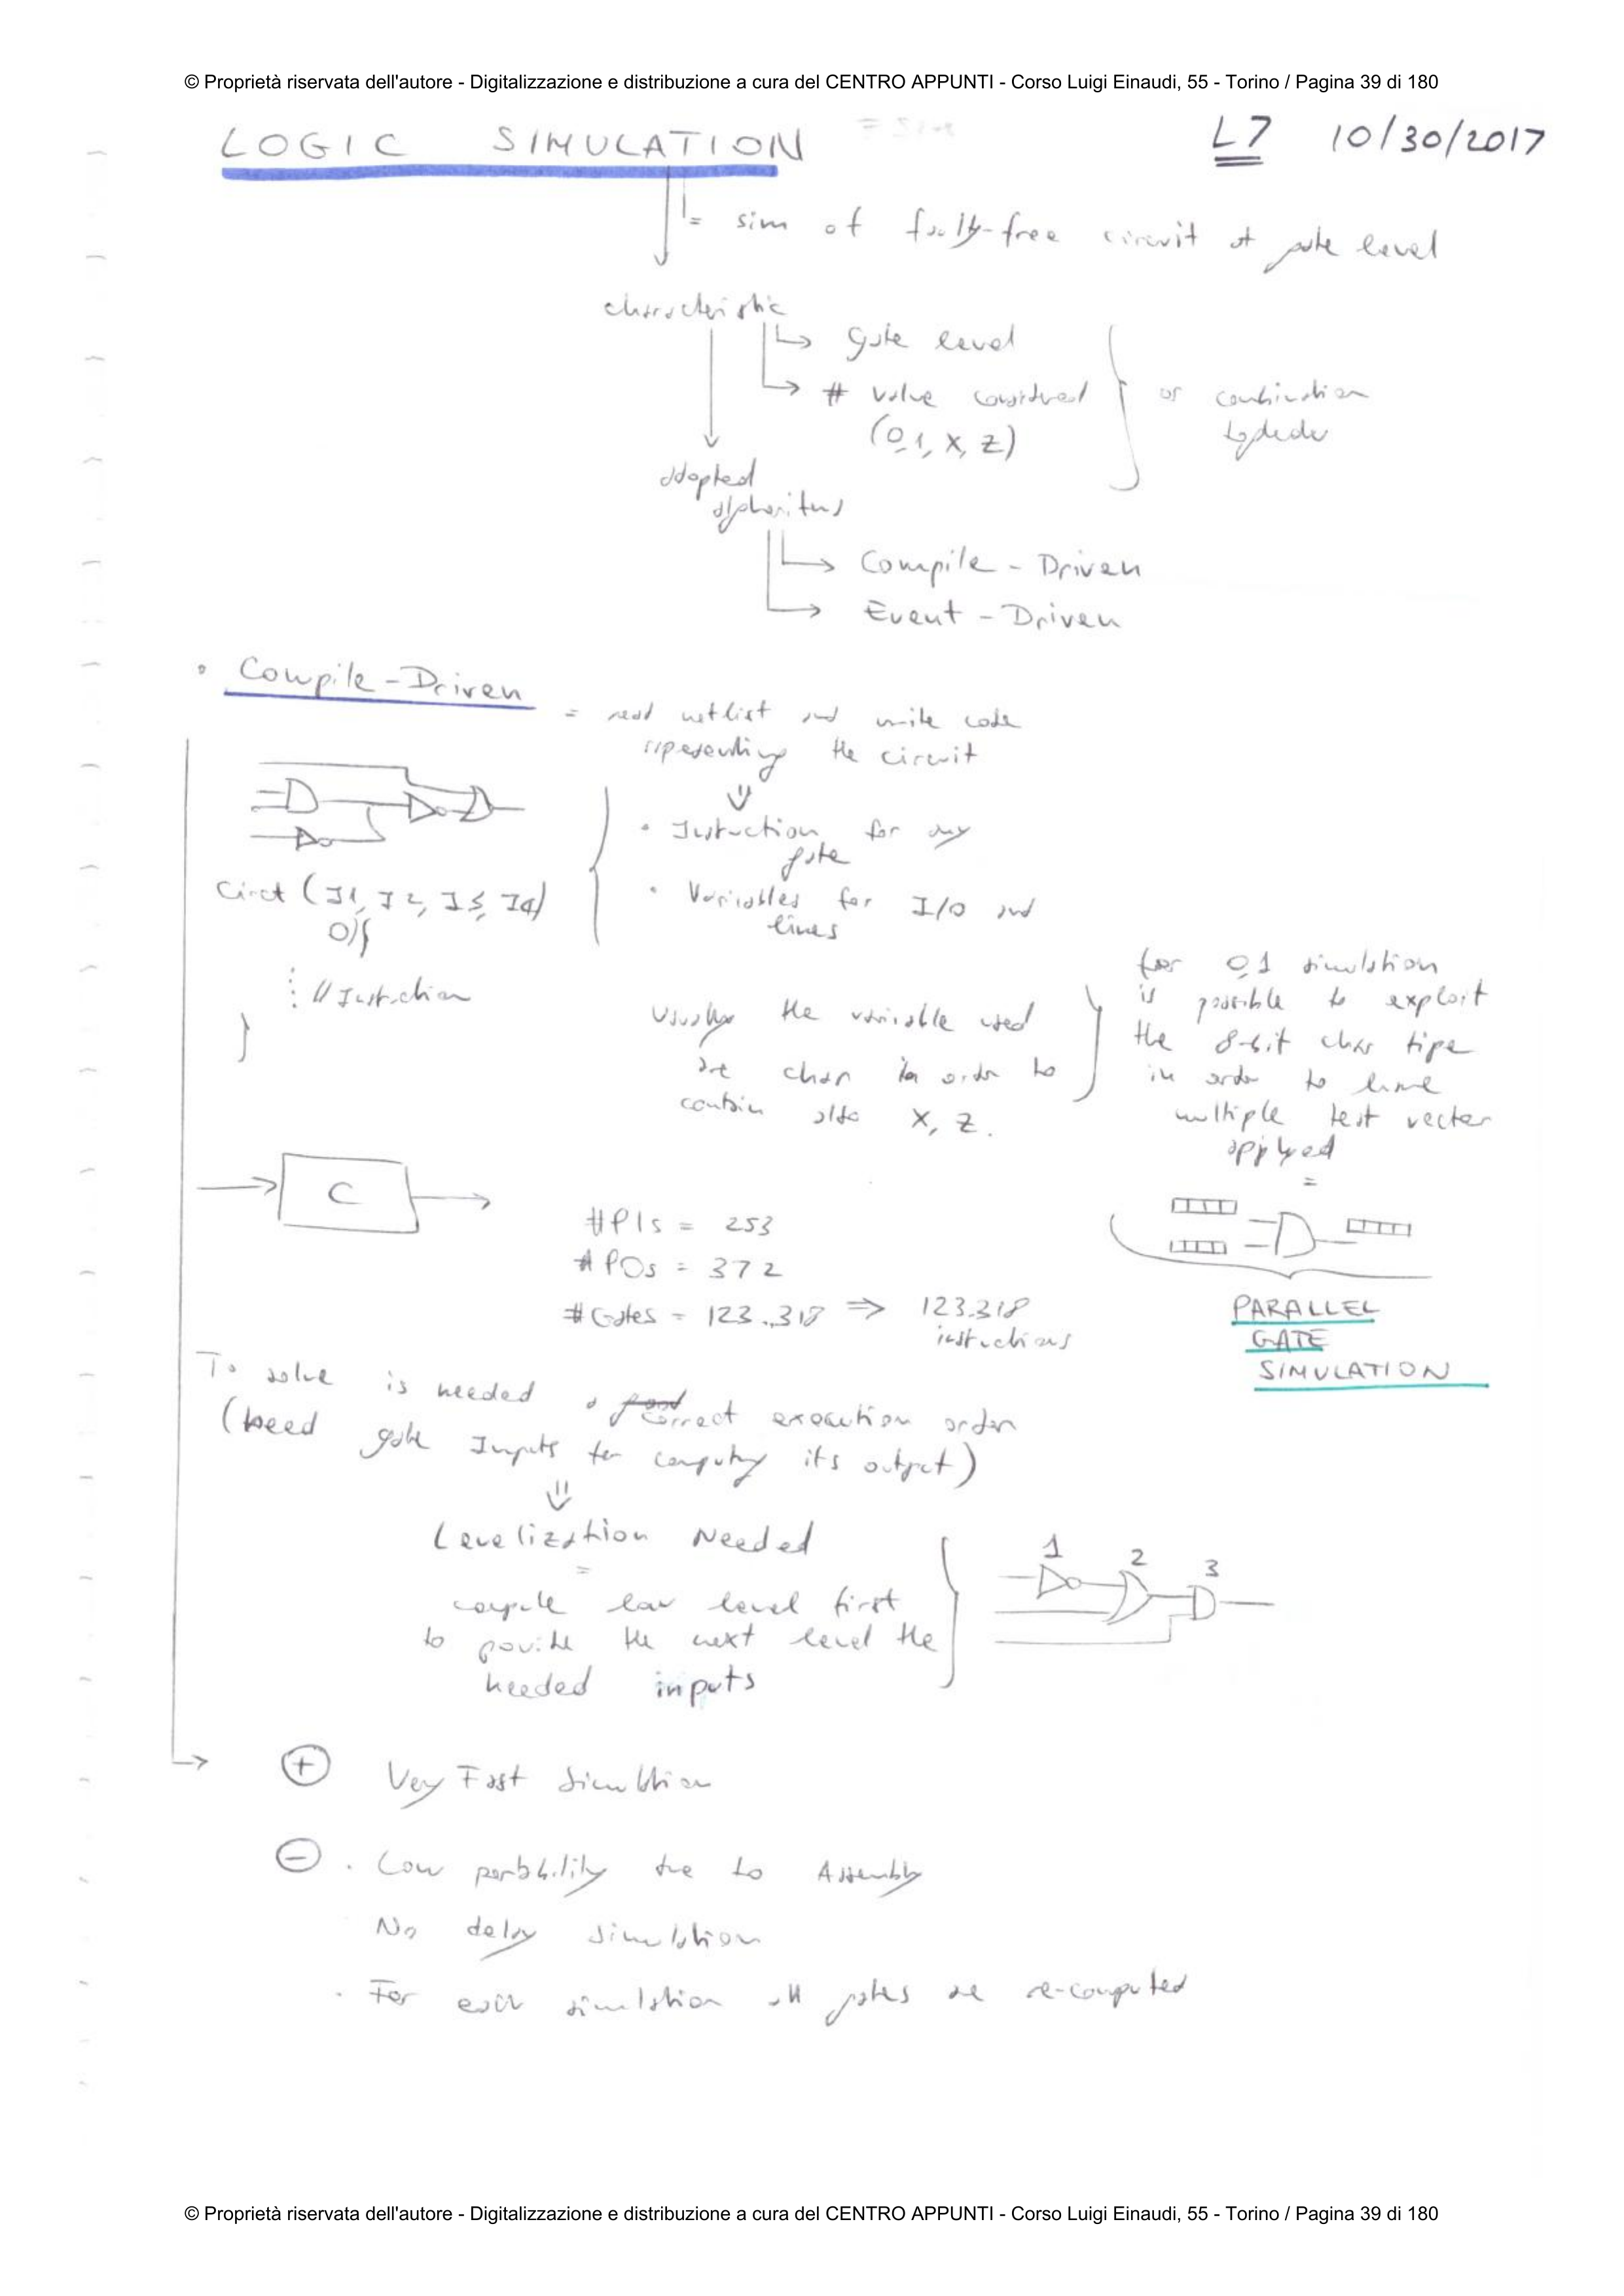 © Proprietà riservata dell'autore - Digitalizzazione e distribuzione a cura del CENTRO APPUNTI - Corso Luigi Einaudi, 55 - Torino / Pagina 39 di 180
LOGIC SIMULATION
L7 10/30/2017
= sim of faulty-free circuit at gate level
characteristic
gate level
# value considered
(0,1, X, Z)
or combination
adopted
algorithms
Compile-Driven
Event-Driven
• Compile-Driven
= read netlist and write code
representing the circuit
• Instruction for any
gate
• Variables for I/O and
lines
Circt (I1, I2, I3, I4)
// Instruction
}
usually the variable used
are char in order to
contain also X, Z.
for 0,1 simulation
is possible to exploit
the 8-bit char tipe
in order to have
multiple test vector
applyed
=
C
#PIs = 253
#POs = 372
#Gates = 123.318 ⇒ 123.318
instructions
PARALLEL
GATE
SIMULATION
To solve is needed a correct execution order
(need gate Inputs for computing its output)
⇓
Levelization Needed
=
compile low level first
to provide the next level the
needed inputs
1 2 3
+ Very Fast Simulation
- . Low portability due to Assembly
No delay simulation
. For each simulation all gates are re-computed
© Proprietà riservata dell'autore - Digitalizzazione e distribuzione a cura del CENTRO APPUNTI - Corso Luigi Einaudi, 55 - Torino / Pagina 39 di 180